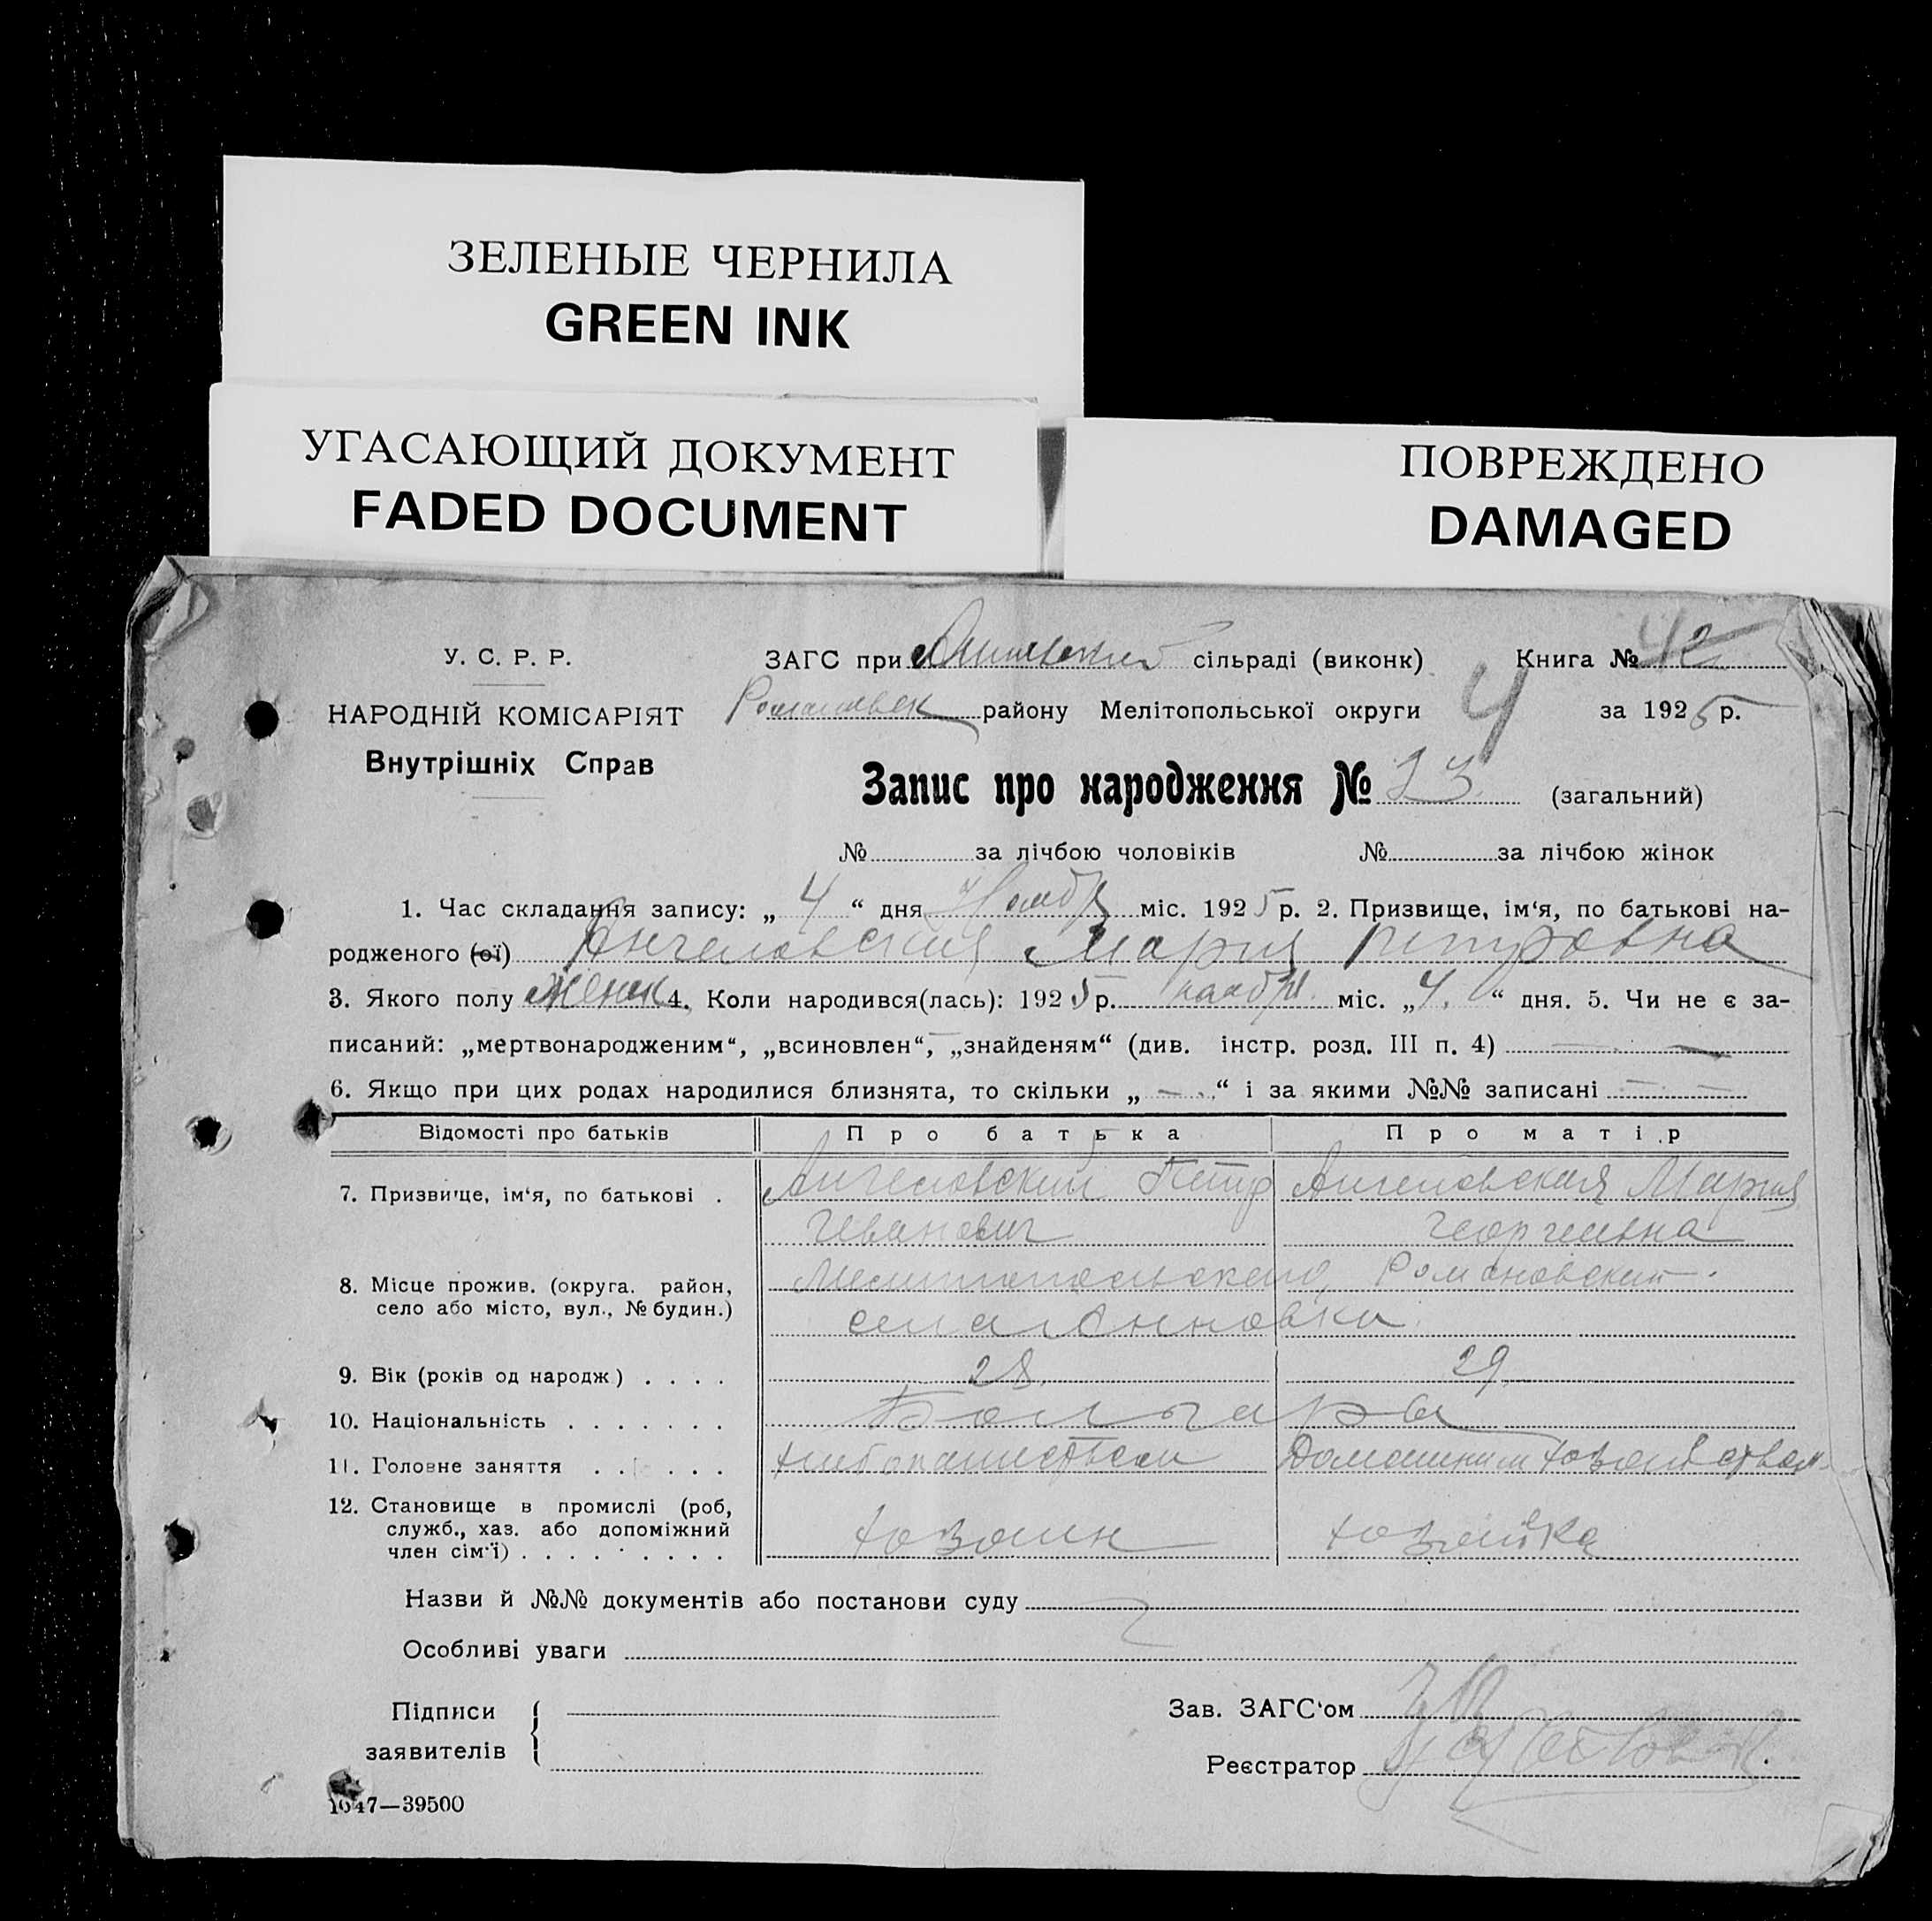 ЗЕЛЕНЫЕ ЧЕРНИЛА
GREEN INK
УГАСАЮЩИЙ ДОКУМЕНТ
FADED DOCUMENT
ПОВРЕЖДЕНО
DAMAGED
У. С. Р. Р.
НАРОДНІЙ КОМІСАРІЯТ
Внутрішніх Справ
ЗАГС при сільраді (виконк) Книга № 42
району Мелітопольської округи 4 за 1925 р.
Запис про народження № 23 (загальний)
№ за лічбою чоловіків № за лічбою жінок
1. Час складання запису: „ 4 “ дня Ноябр міс. 1925 р. 2. Призвище, ім‘я, по батькові на-
родженого (ої) Ангеловская Мария Петровна
3. Якого полу Женск 4. Коли народився(лась): 1925 р. наабря міс. „ 4. “ дня. 5. Чи не є за-
писаний: „мертвонародженим“, „всиновлен“, „знайденям“ (див. інстр. розд. III п. 4)
6. Якщо при цих родах народилися близнята, то скільки „ — “ і за якими №№ записані — —
Відомості про батьків Про батька Про матір
7. Призвище, ім‘я, по батькові . Ангеловский Петр Ангеловская Мария
Иванович Георгиевна
8. Місце прожив. (округа. район, Мелитопольского, Романовский.
село або місто, вул., № будин.) села Анновка
9. Вік (років од народж) . . . . 28. 29.
10. Національність . . . . . . . Болгары
11. Головне заняття . . . . . . хлебопашеством Домашним хозяйством
12. Становище в промислі (роб,
служб., хаз. або допоміжний
член сім‘ї) . . . . . . . . . хозаин хозяйка
Назви й №№ документів або постанови суду
Особливі уваги
Підписи
заявителів
Зав. ЗАГС‘ом
Реєстратор
1047—39500